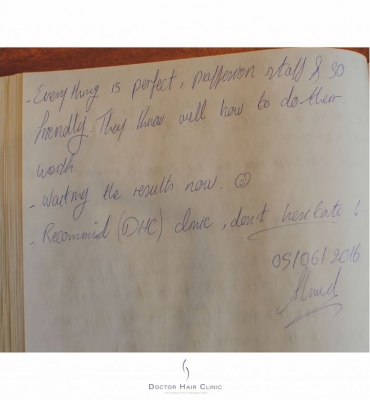 - Everything is perfect, proffession staff & so
friendly. They know well how to do their
work.
- Waiting the results now. ☺
- Recommind (DHC) clinic, don't hesitate !
05/06/2016
DOCTOR HAIR CLINIC